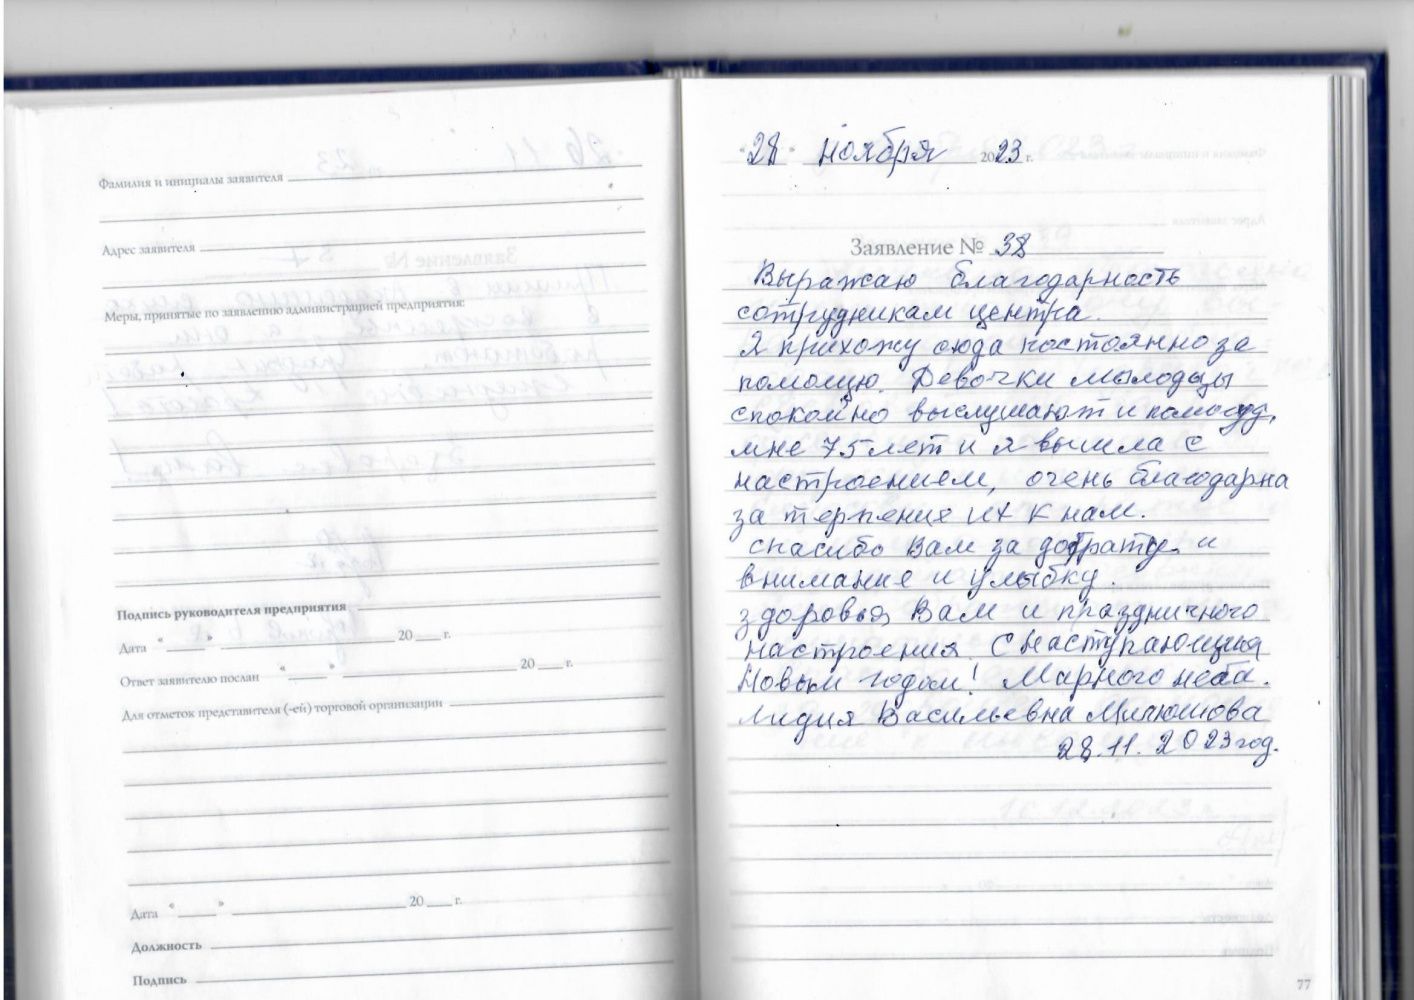 Фамилия и инициалы заявителя
Адрес заявителя
Меры, принятые по заявлению администрацией предприятия:
Подпись руководителя предприятия
Дата « » 20 г.
Ответ заявителю послан « » 20 г.
Для отметок представителя (-ей) торговой организации
Дата « » 20 г.
Должность
Подпись
"28" ноября 2023 г.
Заявление № 38
Выражаю благодарность
сотрудникам центра.
Я прихожу сюда постоянно за
помощю. Девочки мылодцы
спокойно выслушают и помогут,
мне 75 лет и я вышла с
настроением, очень благодарна
за терпения их к нам.
спасибо Вам за доброту и
внимание и улыбку.
здоровья Вам и праздничного
настроения С наступающим
Новым годом! Мирного неба.
Лидия Васильевна
28.11.2023 год.
77